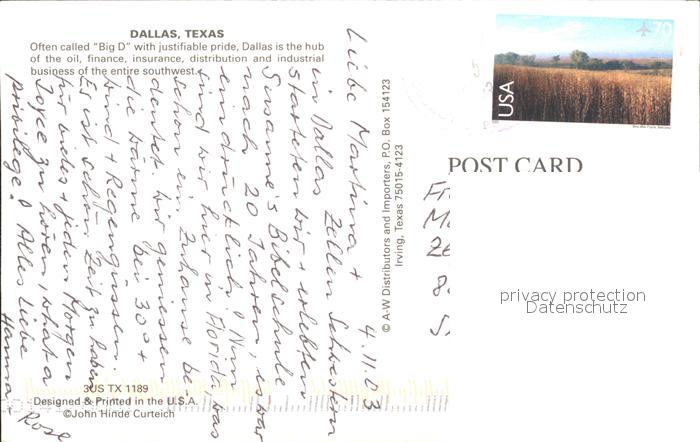 DALLAS, TEXAS
Often called "Big D" with justifiable pride, Dallas is the hub
of the oil, finance, insurance, distribution and industrial
business of the entire southwest.
4.11.03
Liebe Martina +
Zellen Schwestern
in Dallas
starteten wir + erlebten
Susanne's Bibelschule
nach 20 Jahren, es war
eindrücklich! Nun
sind wir hier in Florida was
schon ein Zuhause be-
deutet. Wir geniessen
die Wärme bei 30° +
Wind + Regengüssen.
Es ist schön Zeit zu haben
für vieles + jeden Morgen
Joyce zu hören, what a
privilege! Alles Liebe
Hanna + Rolf
© A-W Distributors and Importers, P.O. Box 154123
Irving, Texas 75015-4123
70
USA
POST CARD
privacy protection
Datenschutz
3US TX 1189
Designed & Printed in the U.S.A.
©John Hinde Curteich